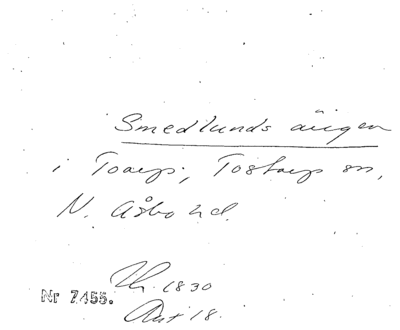 Smedlunds ängen
i Toarp, Tostarp sn,
N. Åsbo hd.
Th. 1830
Nr 7455.
Ant 18.